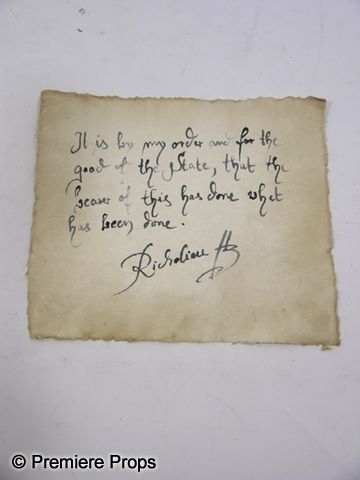 It is by my order and for the
good of the State, that the
bearer of this has done what
has been done.
Richelieu
© Premiere Props